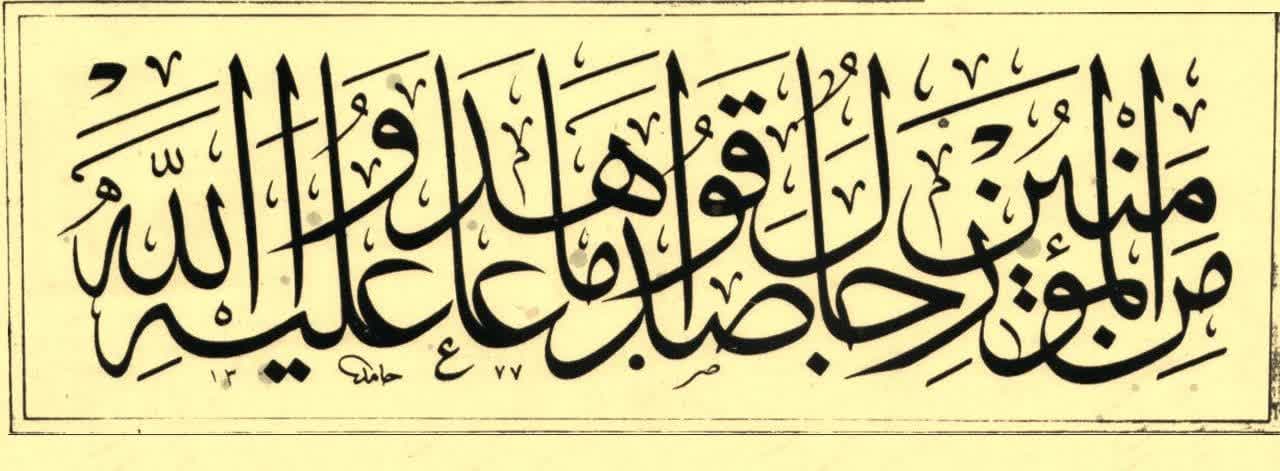 مِنَ الْمُؤْمِنِينَ رِجَالٌ صَدَقُوا مَا عَاهَدُوا اللّٰهَ عَلَيْهِ
٧٧ حامد ١٣